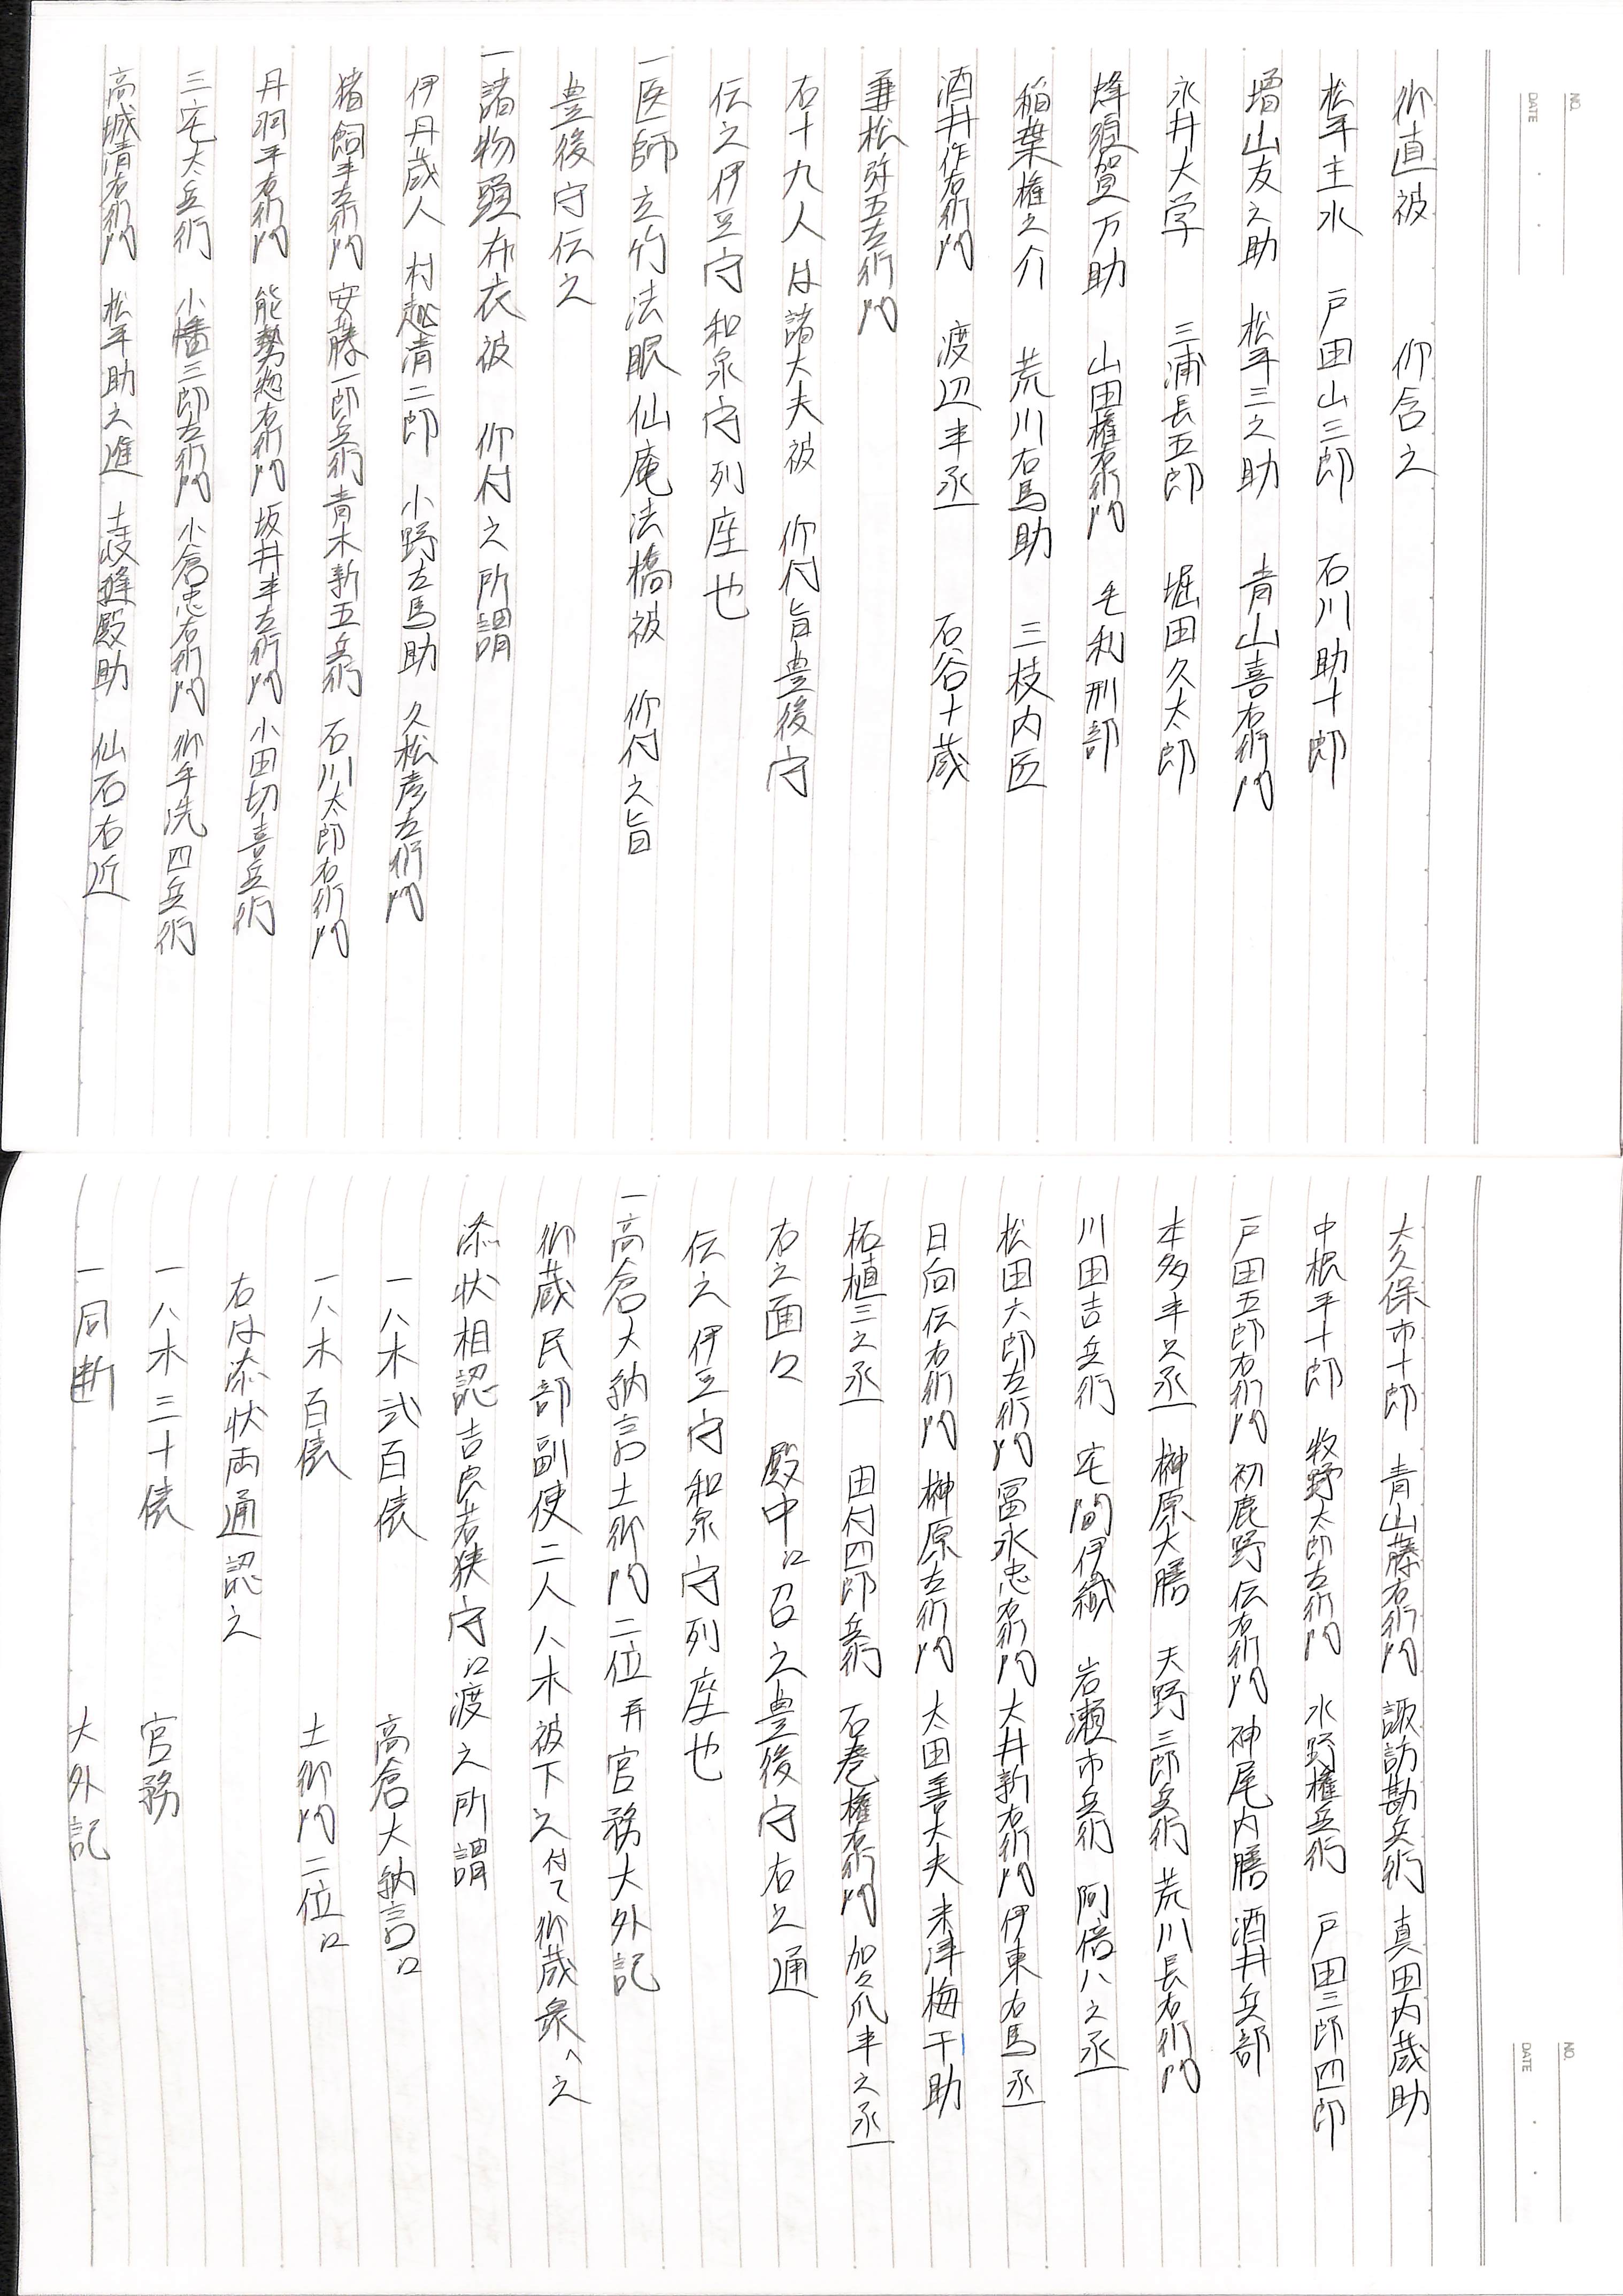 御直被　仰含之
松平主水　戸田山三郎　石川助十郎
増山友之助　松平三之助　青山喜右衛門
永井大学　三浦長五郎　堀田久太郎
蜂須賀万助　山田権右衛門　毛利刑部
稲葉権之介　荒川右馬助　三枝内匠
酒井作右衛門　渡辺半丞　石谷十蔵
兼松弥五左衛門
右十九人は諸大夫被　仰付旨豊後守
伝之伊豆守和泉守列座也
一医師立竹法眼仙庵法橋被　仰付之旨
豊後守伝之
一諸物頭布衣被　仰付之所謂
伊丹蔵人　村越清二郎　小野左馬助　久松彦左衛門
猪飼半左衛門　安藤一郎兵衛　青木新五兵衛　石川太郎右衛門
丹羽平右衛門　能勢惣右衛門　坂井半左衛門　小田切喜兵衛
三宅大兵衛　小幡三郎左衛門　小倉忠右衛門　御手洗四兵衛
高城清右衛門　松平助之進　土岐縫殿助　仙石右近
大久保市十郎　青山藤右衛門　諏訪勘兵衛　真田内蔵助
中根平十郎　牧野太郎左衛門　水野権兵衛　戸田三郎四郎
戸田五郎右衛門　初鹿野伝右衛門　神尾内膳　酒井兵部
本多半之丞　榊原大膳　天野三郎兵衛　荒川長右衛門
川田吉兵衛　宅間伊織　岩瀬市兵衛　阿倍八之丞
松田六郎左衛門　冨永忠右衛門　大井新右衛門　伊東右馬丞
日向伝右衛門　榊原左衛門　太田善大夫　末津梅干助
柘植三之丞　田付四郎兵衛　石巻権右衛門　加々爪半之丞
右之面々　殿中江召之豊後守右之通
伝之伊豆守和泉守列座也
一高倉大納言土御門二位并官務大外記
御蔵民部副使二人八木被下之付て御蔵衆へ之
添状相認吉良若狭守江渡之所謂
一八木弐百俵　高倉大納言江
一八木百俵　土御門二位江
右は添状両通認之
一八木三十俵　官務
一同断　大外記